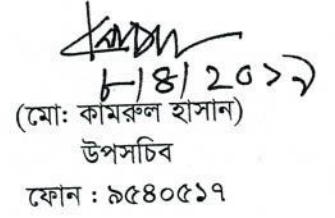 ৮/৪/২০১৯
(মোঃ কামরুল হাসান)
উপসচিব
ফোন : ৯৫৪০৫১৭